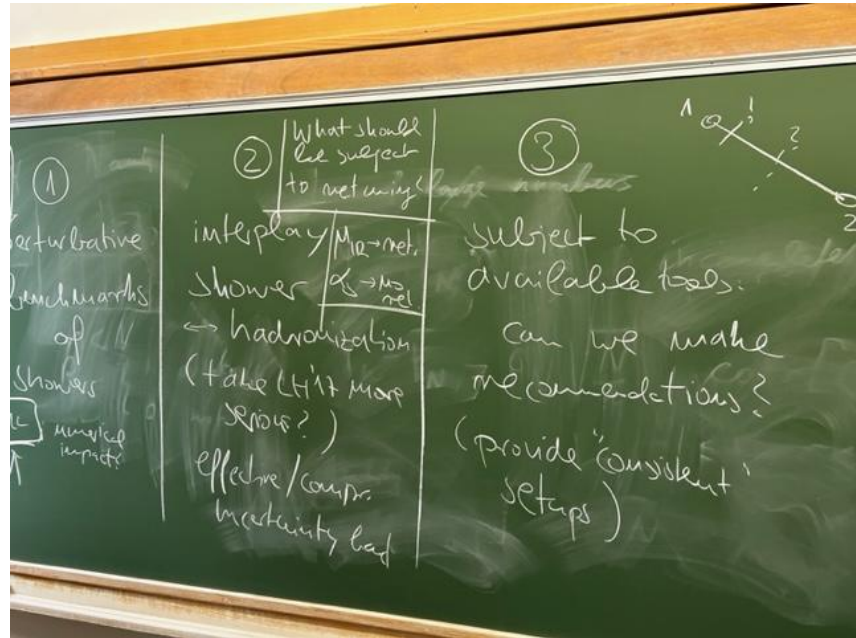 ①
perturbative
benchmarks
of
showers
numerical
impact?
②
What should
be subject
to retuning?
interplay
μ_IR → ret.
shower
α_s → no ret.
↔ hadronization
(take LH'17 more
serious?)
effective/compr.
uncertainty band
③
subject to
available tools:
can we make
recommendations?
(provide "consistent"
setups)
1
!
?
2